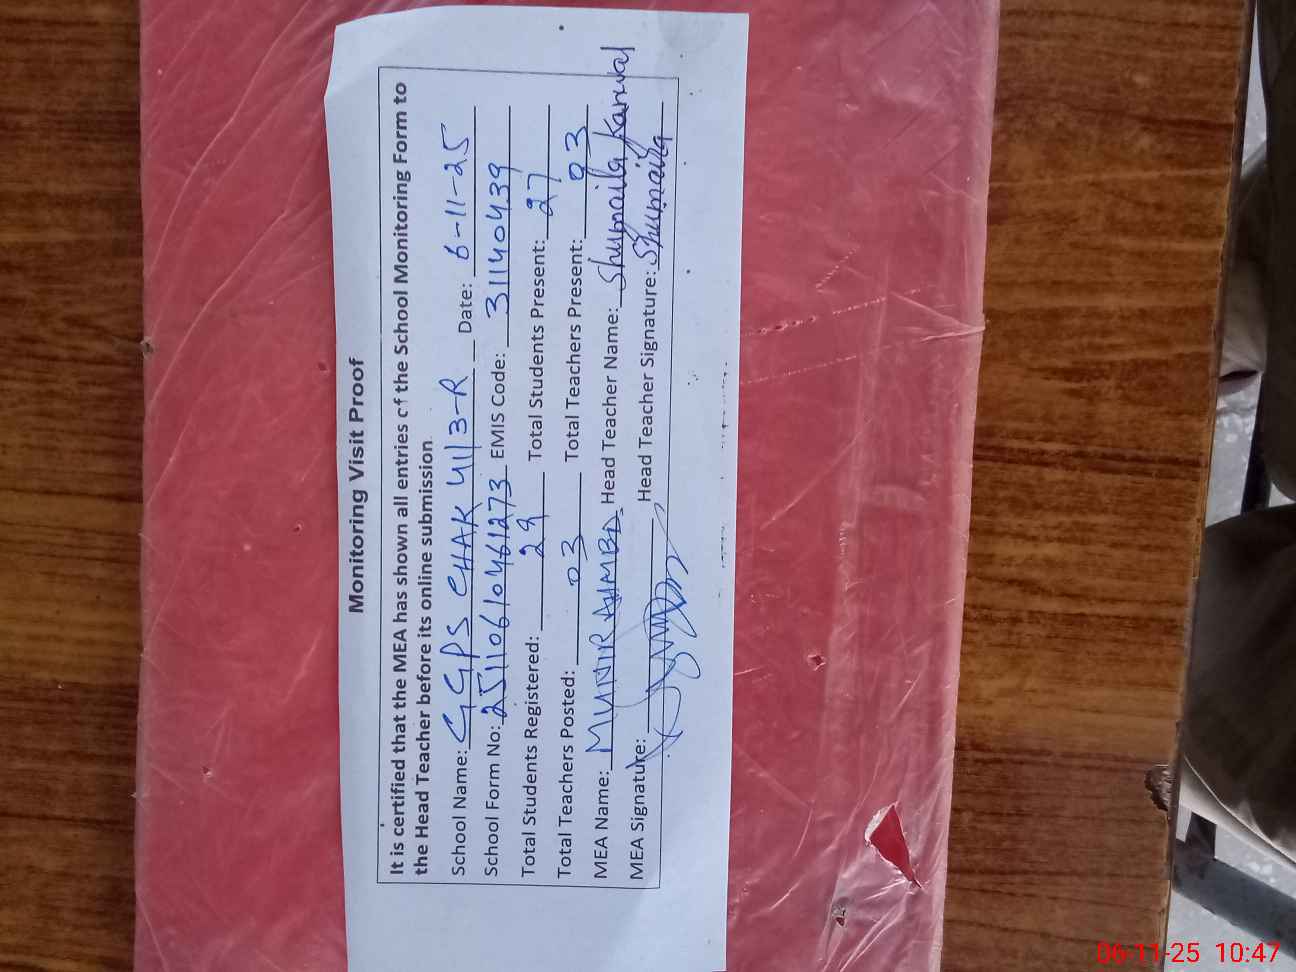 Monitoring Visit Proof
It is certified that the MEA has shown all entries of the School Monitoring Form to
the Head Teacher before its online submission
School Name: GGPS CHAK 41/3-R Date: 6-11-25
School Form No: 251106104461273 EMIS Code: 31140439
Total Students Registered: 29 Total Students Present: 27
Total Teachers Posted: 03 Total Teachers Present: 03
MEA Name: MUNIR AHMED Head Teacher Name: Shumaila Kanwal
MEA Signature: Head Teacher Signature: Shumaila
06-11-25 10:47